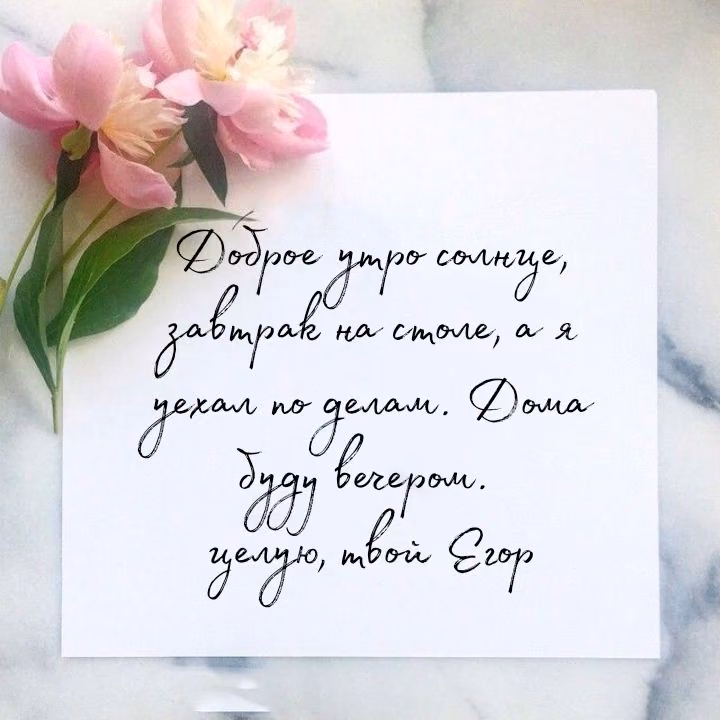 Доброе утро солнце,
завтрак на столе, а я
уехал по делам. Дома
буду вечером.
целую, твой Егор